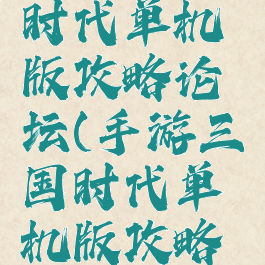 时代单机
版攻略论
坛(手游三
国时代单
机版攻略